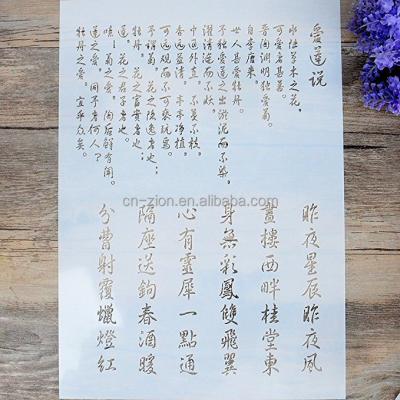 爱莲说
水陆草木之花，
可爱者甚蕃。
晋陶渊明独爱菊。
自李唐来，
世人甚爱牡丹。
予独爱莲之出淤泥而不染，
濯清涟而不妖，
中通外直，不蔓不枝。
香远益清，亭亭净植，
可远观而不可亵玩焉。
予谓菊，花之隐逸者也；
牡丹，花之富贵者也；
莲，花之君子者也。
噫！菊之爱，陶后鲜有闻。
莲之爱，同予者何人？
牡丹之爱，宜乎众矣。
cn-zion.en.alibaba.com
昨夜星辰昨夜風
畫樓西畔桂堂東
身無彩鳳雙飛翼
心有靈犀一點通
隔座送鉤春酒暖
分曹射覆蠟燈紅